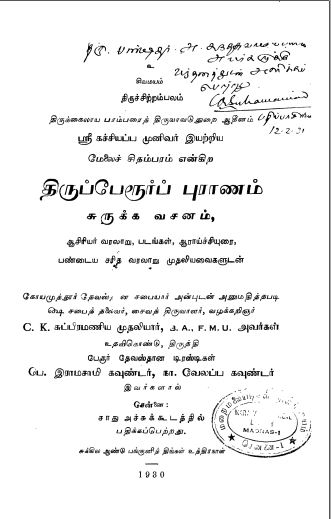 உ
சிவமயம்
திருச்சிற்றம்பலம்
திருக்கைலாய பரம்பரைத் திருவாவடுதுறை ஆதீனம்
12-2-31
ஸ்ரீ கச்சியப்ப முனிவர் இயற்றிய
மேலைச் சிதம்பரம் என்கிற
திருப்பேரூர்ப் புராணம்
சுருக்க வசனம்,
ஆசிரியர் வரலாறு, படங்கள், ஆராய்ச்சியுரை,
பண்டைய சரித வரலாறு முதலியவைகளுடன்
கோயமுத்தூர் தேவஸ்தான சபையார் அன்புடன் அனுமதித்தபடி
ஷெ சபைத் தலைவர், சைவத் திருவாளர், வழக்கறிஞர்
C. K. சுப்பிரமணிய முதலியார், B. A., F. M. U. அவர்கள்
உதவிகொண்டு, திருத்தி
பேரூர் தேவஸ்தான டிரஸ்டிகள்
பெ. இராமசாமி கவுண்டர், நா. வேலப்ப கவுண்டர்
இவர்களால்
சென்னை:
சாது அச்சுக்கூடத்தில்
பதிக்கப்பெற்றது.
MADRAS-1
சென்னை-1
சுக்கில ஆண்டு பங்குனித் திங்கள் உத்திரநாள்
1930